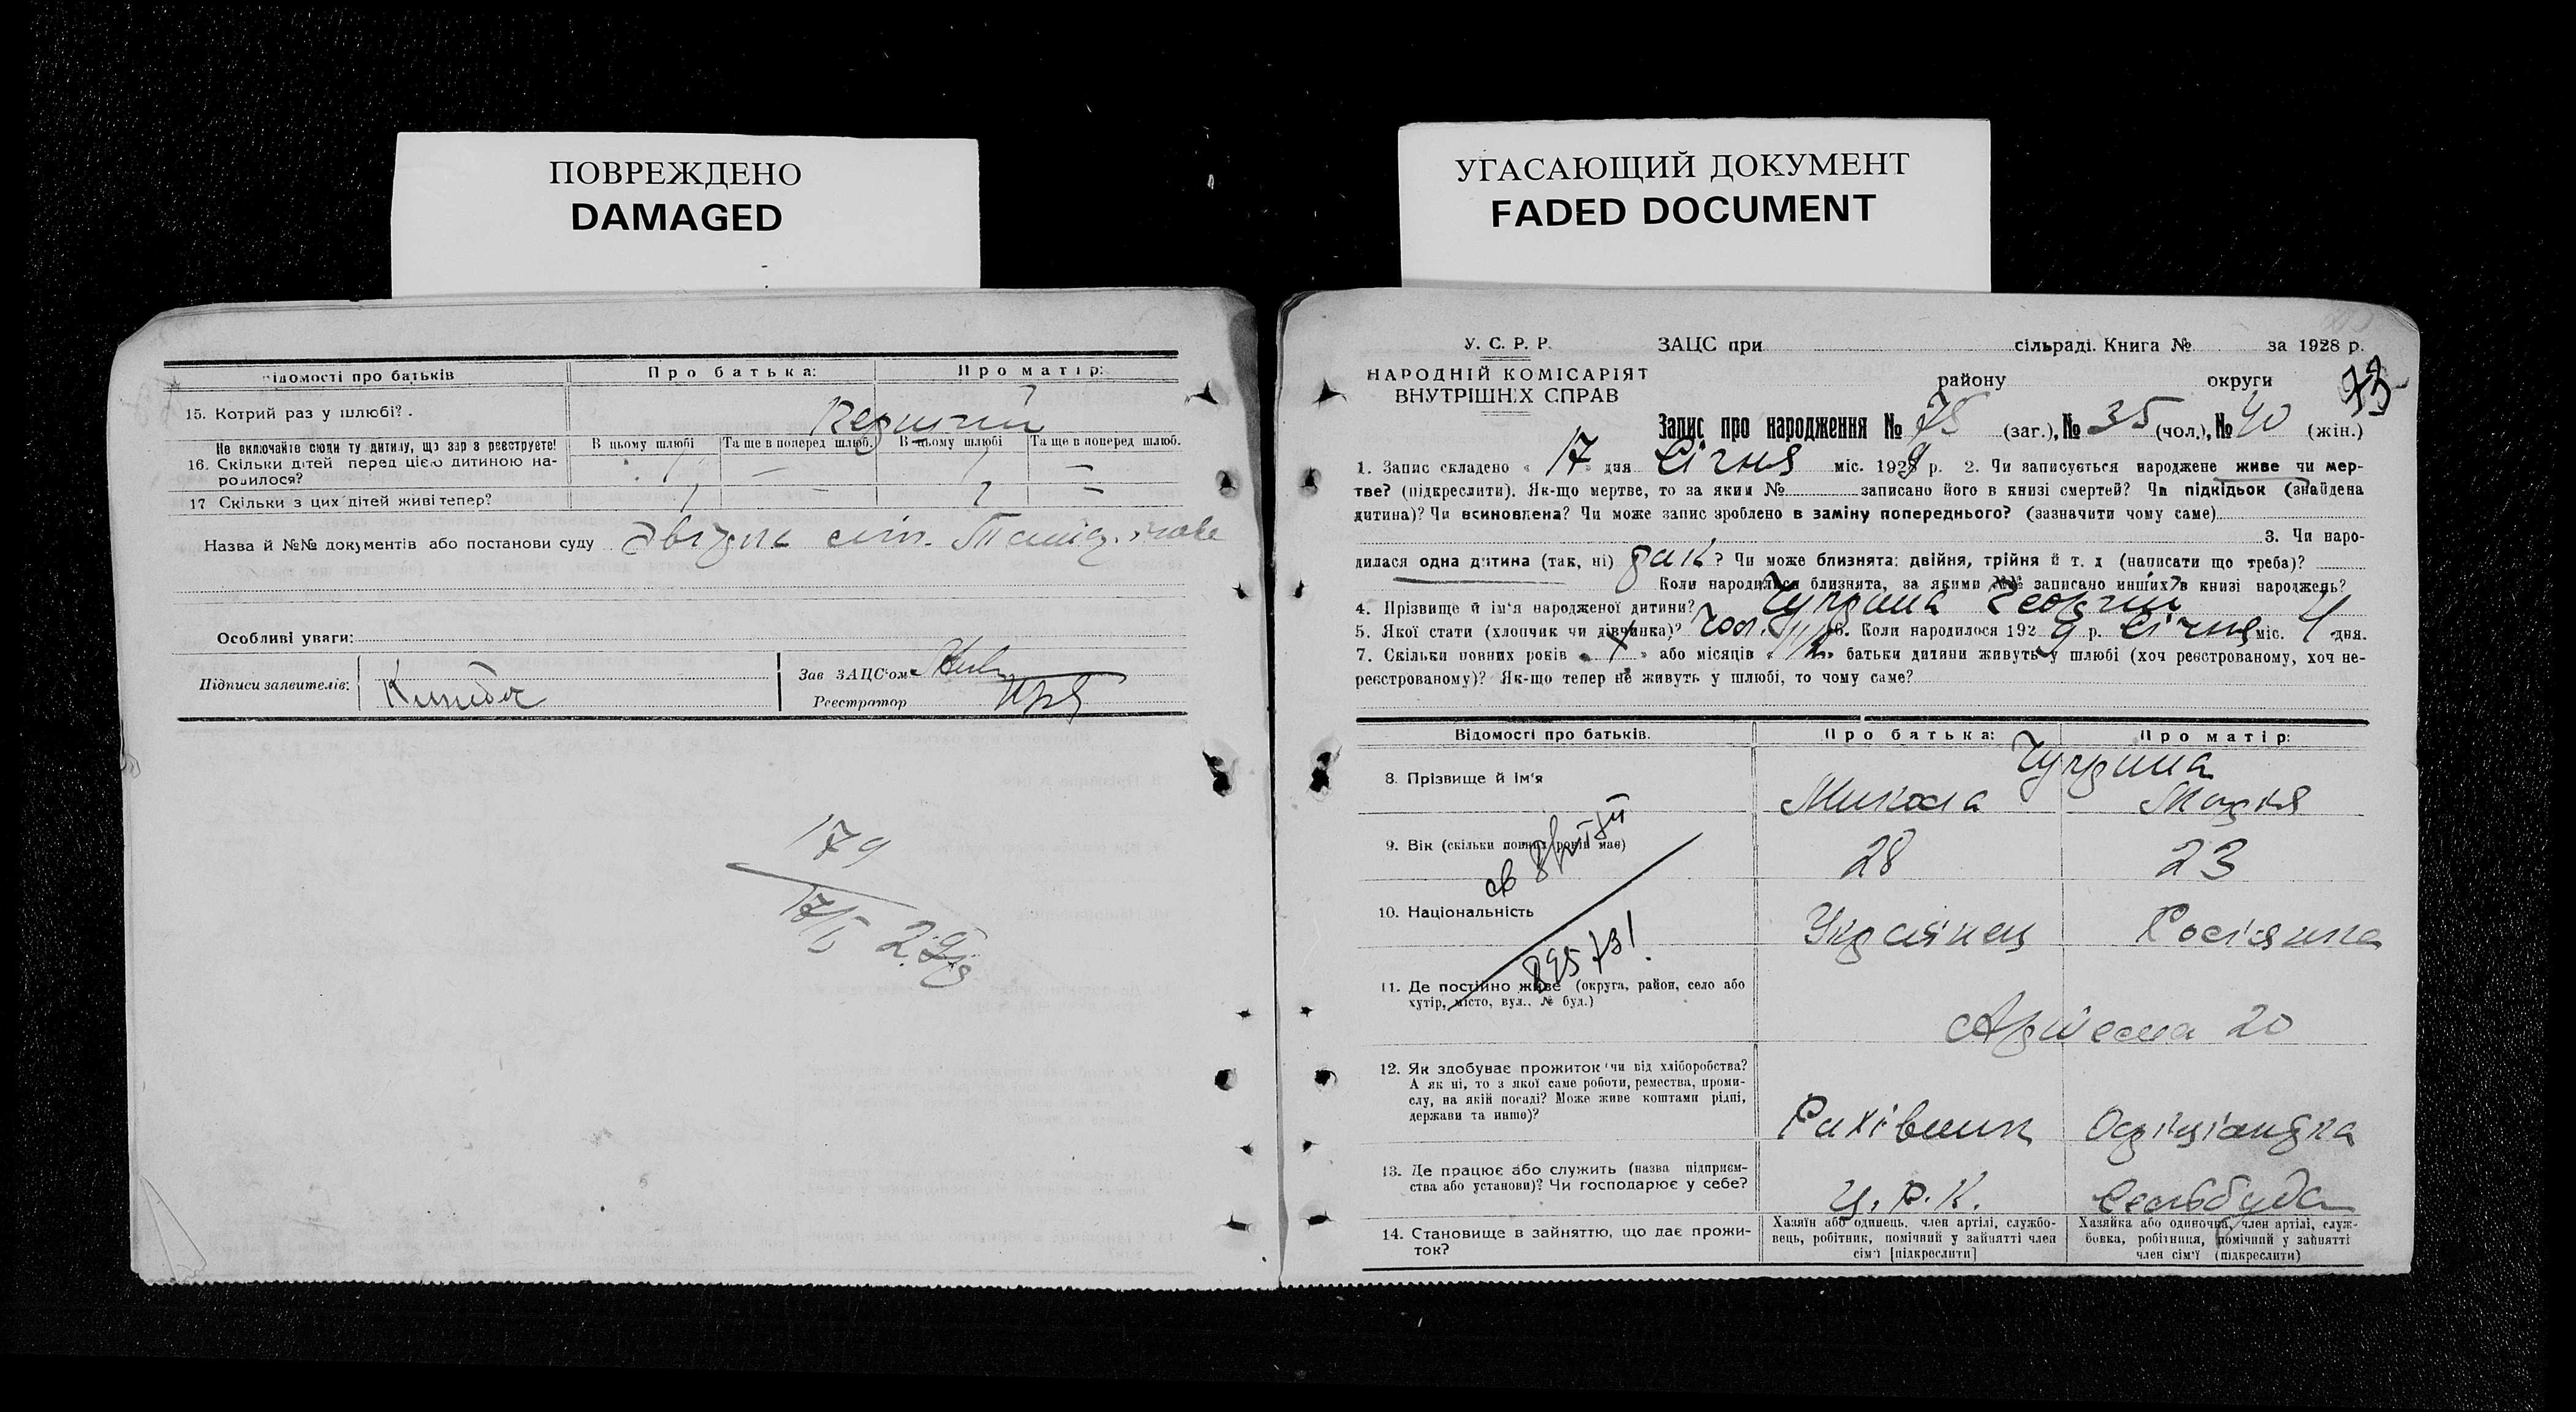 ПОВРЕЖДЕНО
DAMAGED
УГАСАЮЩИЙ ДОКУМЕНТ
FADED DOCUMENT
ідомості про батьків
Про батька:
Про матір:
15. Котрий раз у шлюбі?
Перший
Не включайте сюди ту дитину, що зараз реєструєте!
В цьому шлюбі
Та ще в поперед шлюб.
В цьому шлюбі
Та ще в поперед шлюб.
16. Скільки дітей перед цією дитиною на-
родилося?
1 — 1 —
17 Скільки з цих дітей живі тепер?
1 — 1 —
Назва й №№ документів або постанови суду
Особливі уваги:
Підписи заявителів:
Зав ЗАЦС'ом
Реєстратор
179
17/I 29 р
У. С. Р. Р.
НАРОДНІЙ КОМІСАРІЯТ
ВНУТРІШНІХ СПРАВ
ЗАЦС при сільраді. Книга № за 1928 р.
району округи
73
Запис про народження № 75 (заг.), № 35 (чол.), № 40 (жін.)
1. Запис складено « 17 » дня Січня міс. 1929 р. 2. Чи записується народжене живе чи мер-
тве? (підкреслити). Як-що мертве, то за яким № записано його в книзі смертей? Чи підкідьок (знайдена
дитина)? Чи всиновлена? Чи може запис зроблено в заміну попереднього? (зазначити чому саме)
3. Чи наро-
дилася одна дитина (так, ні) так? Чи може близнята: двійня, трійня й т. д (написати що треба)?
Коли народилися близнята, за якими №№ записано инших в книзі народжень?
4. Прізвище й ім'я народженої дитини? Чуприна Георгій
5. Якої стати (хлопчик чи дівчинка)? чол. 6. Коли народилося 1929 р. Січня міс. 4 дня.
7. Скільки повних років « » або місяців « » батьки дитини живуть у шлюбі (хоч реєстрованому, хоч не-
реєстрованому)? Як-що тепер не живуть у шлюбі, то чому саме?
Відомості про батьків.
Про батька:
Про матір:
8. Прізвище й ім'я
Чуприна
Микола Марія
9. Вік (скільки повних років має)
28 23
10. Національність
Українец Росіянка
11. Де постійно живе (округа, район, село або
хутір, місто, вул., № буд.)
Артема 20
12. Як здобуває прожиток чи від хліборобства?
А як ні, то з якої саме роботи, ремества, проми-
слу, на якій посаді? Може живе коштами рідні,
держави та инше)?
Рахівник Офіціантка
13. Де працює або служить (назва підприєм-
ства або установи)? Чи господарює у себе?
Ц. Р. К. Сельбуда
14. Становище в зайняттю, що дає прожи-
ток?
Хазяїн або одинець, член артілі, службо-
вець, робітник, помічний у зайнятті член
сім'ї [підкреслити]
Хазяйка або одиночка, член артілі, служ-
бовка, робітниця, помічний у зайнятті
член сім'ї (підкреслити)